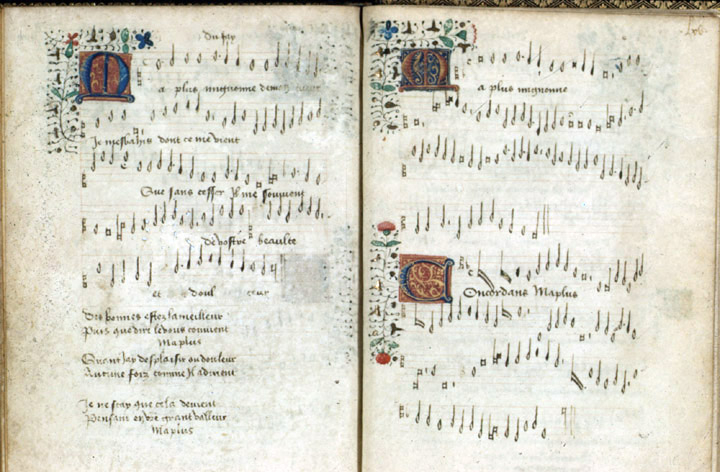 Dufay
Ma plus mignonne de mon cueur
Je mesbahis dont ce me vient
Que sans cesser Il me souvient
de vostre beaulte
et doul ceur
Des bonnes estes la meilleur
Puis que dire le vous couvient
Maplus
Quant Jay desplaisir ou douleur
Aucune foiz comme Il advient
Je ne scay que cela devient
Pensant en vre grant valleur
Maplus
Ma plus mignonne
Concordans Maplus